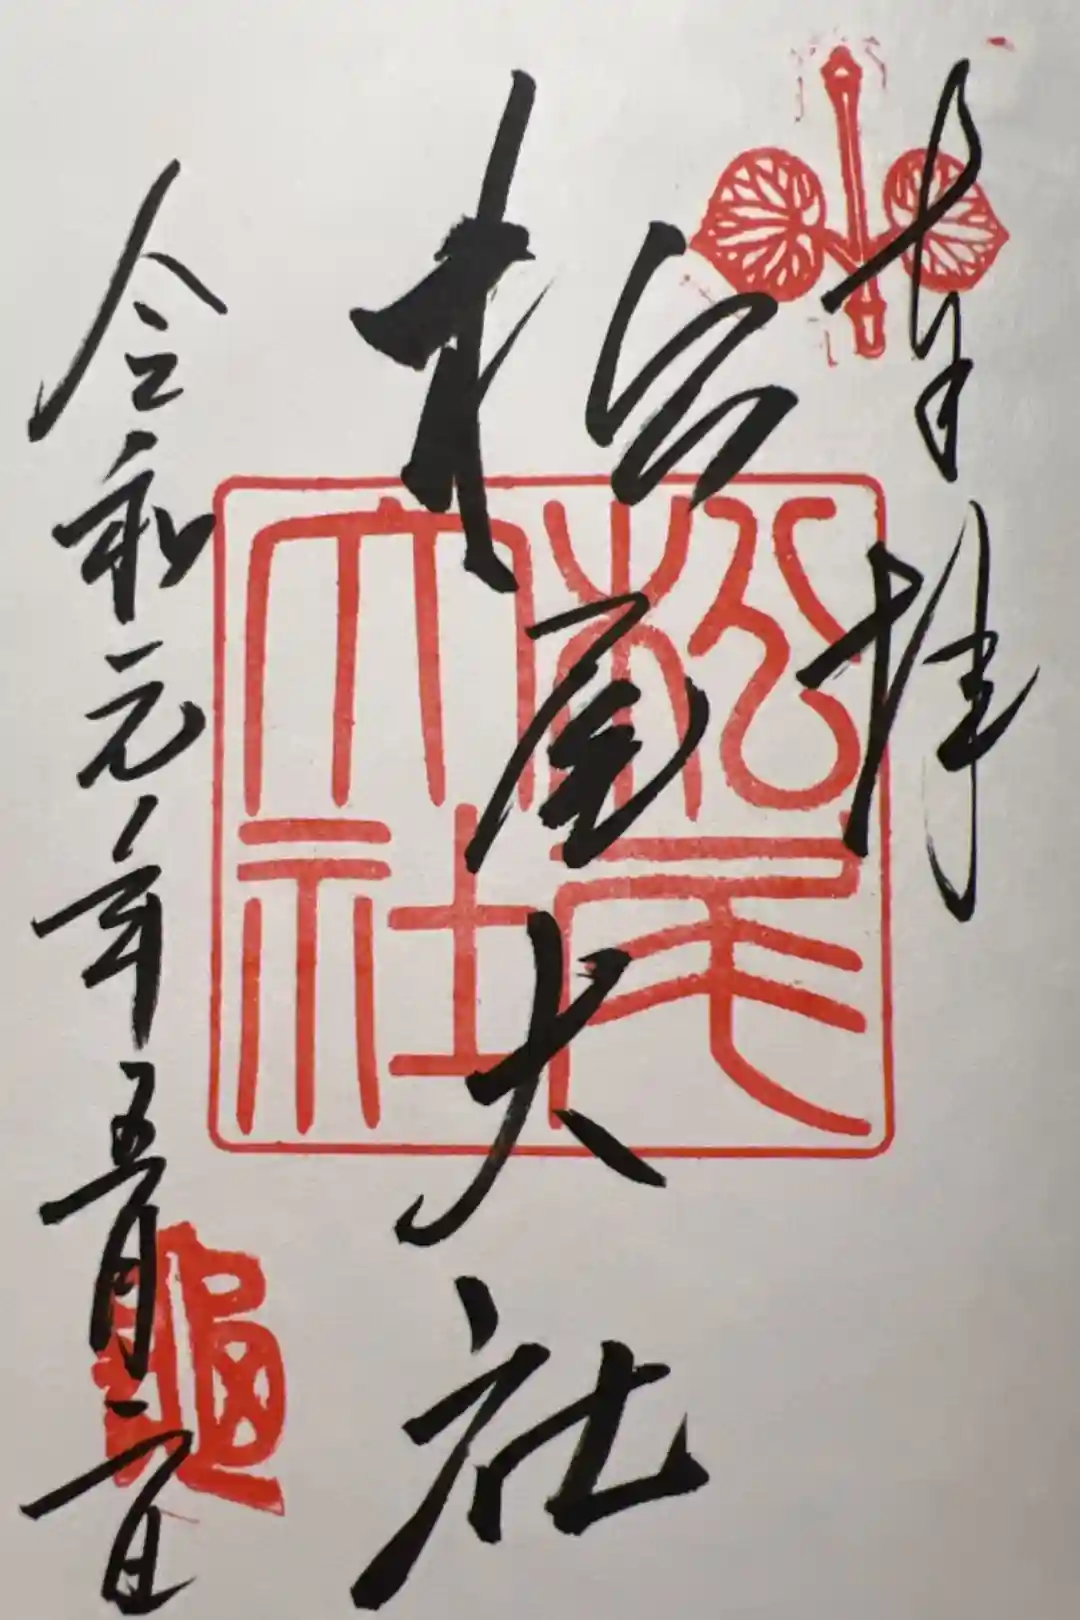 奉拝
松尾大社
松尾大社
令和元年五月二日